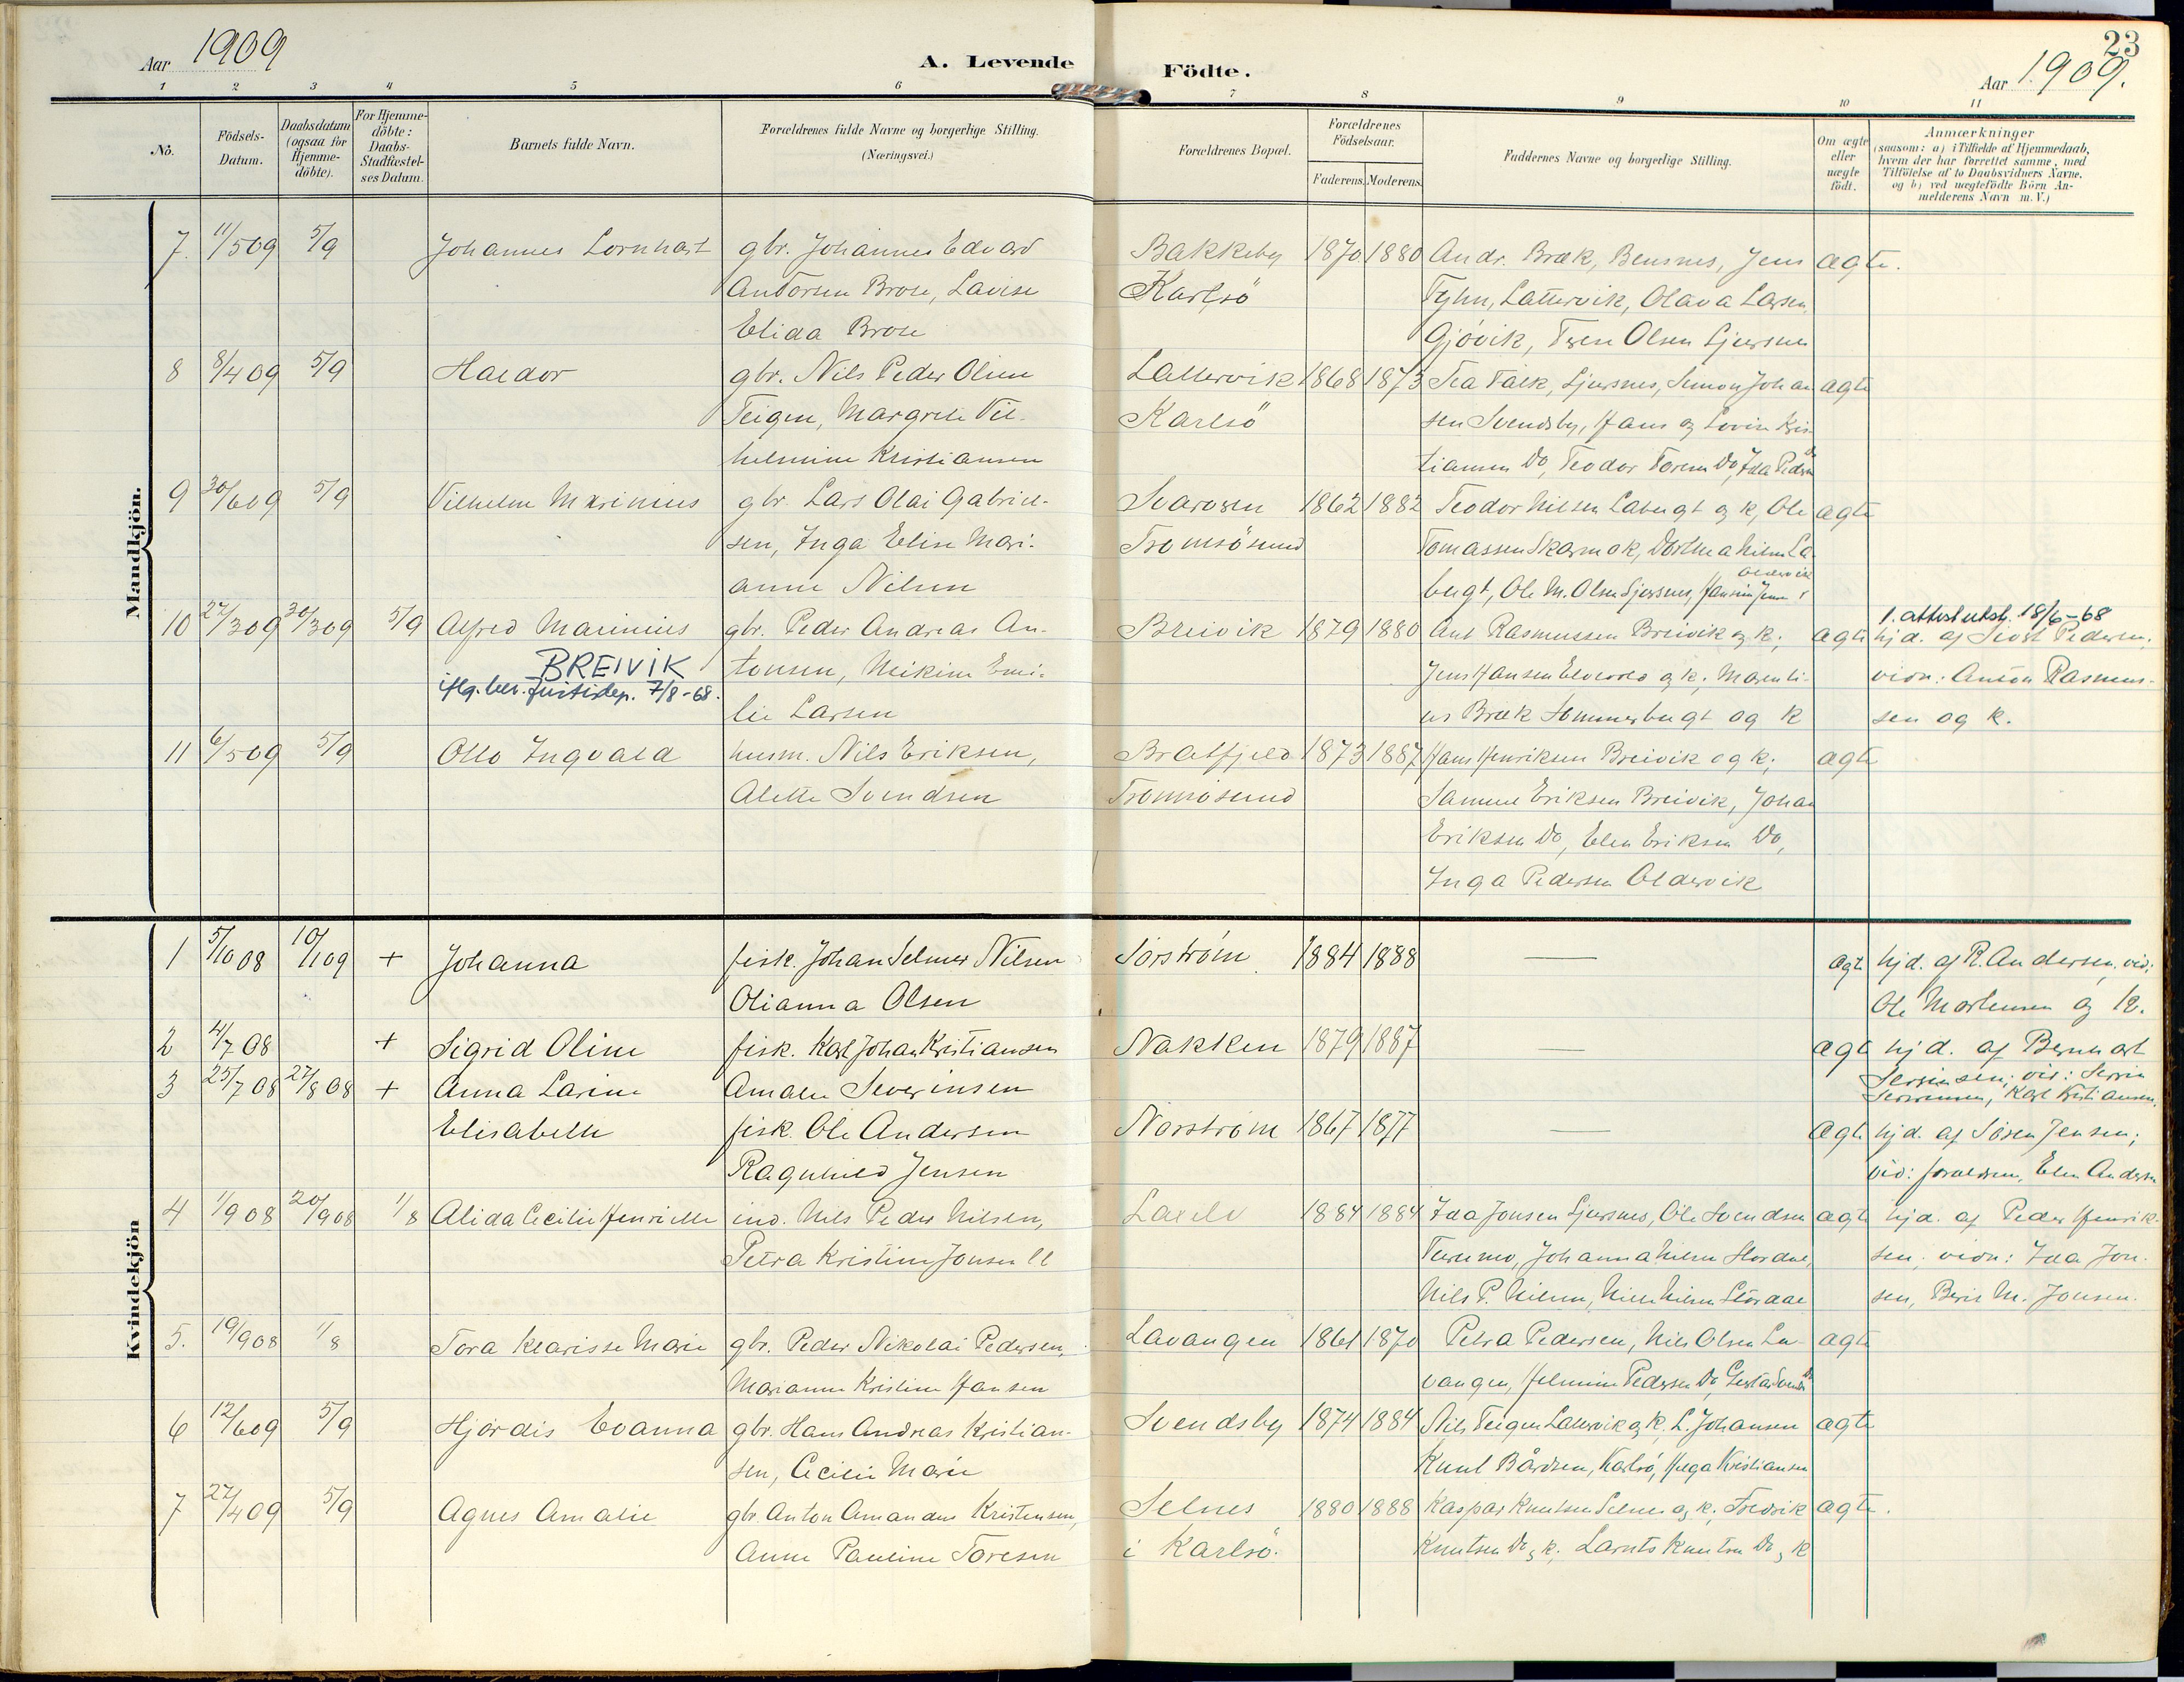 Aar 1909
A. Levende
Födte.
23
Aar 1909.
1 2 3 4 5 6 7 8 9 10 11
No.
Födsels-Datum.
Daabsdatum (ogsaa for Hjemme-döbte).
For Hjemme-döbte: Daabs-Stadfæstel-ses Datum.
Barnets fulde Navn.
Forældrenes fulde Navne og borgerlige Stilling. (Næringsvei.)
Forældrenes Bopæl.
Forældrenes Födselsaar.
Faderens. Moderens.
Faddernes Navne og borgerlige Stilling.
Om ægte eller uægte födt.
Anmærkninger
(saasom: a) i Tilfælde af Hjemmedaab,
hvem der har forrettet samme, med
Tilföielse af to Daabsvidners Navne.
og b) ved uægtefödte Börn An-
melderens Navn m.V.)
Mandkjön.
7. 11/5 09 5/9 Johannes Lornhart gbr. Johannes Edvard Bakkeby 1870 1880 Andr. Bræk, Bensnes, Jens ægte.
Andorsen Brose, Lavise Karlsö Tyhn, Lattervik, Olava Larsen,
Elida Brose Gjövik, Terese Olsen Sjursnes
8 8/4 09 5/9 Haldor gbr. Nils Peder Olsen Lattervik 1868 1873 Tea Falk, Sjursnes, Simon Johan ægte
Teigen, Margrete Vil- Karlsö sen Svendsby, Hans og Lovise Kris-
helmine Kristiansen tiansen Do, Teodor Toresen Do, Ida Pedersen Do
9 30/6 09 5/9 Vilhelm Marinius gbr. Lars Olai Gabriel- Svarvsen 1862 1882 Teodor Nilsen Labugt og k, Ole ægte
sen, Inga Elise Mari- Tromsösund Tomassen Skarmok, Dortea Nilsen La-
anne Nilsen Oldervik
bugt, Ole M. Olsen Sjursnes, Hansine Jensen
10 27/3 09 30/3 09 5/9 Alfred Marinius gbr. Peder Andreas An- Breivik 1879 1880 Ant Rasmussen Breivik og k; ægte hjd. af Sivert Pedersen;
1. attest utst. 18/6-68
BREIVIK tonsen, Nikine Emi- Jens Hansen Elvevold og k; Marenti- vidn: Anton Rasmus-
iflg. bev. Justisdep. 7/8-68. lie Larsen us Bræk Sommerbugt og k sen og k.
11 6/5 09 5/9 Otto Ingvald husm. Nils Eriksen, Bratfjeld 1873 1887 Hans Henriksen Breivik og k; ægte
Alette Svendsen Tromsösund Samuel Eriksen Breivik, Johan
Eriksen Do, Elen Eriksen Do,
Inga Pedersen Oldervik
Kvindekjön
1 5/10 08 10/1 09 + Johanna fisk. Johan Selmer Nilsen Sörström 1884 1888 — ægte hjd. af R. Andersen, vid:
Olianna Olsen Ole Mortensen og k.
2 4/7 08 + Sigrid Oline fisk. Karl Johan Kristiansen Nakken 1879 1887 — ægte hjd. af Bernhart
3 25/7 08 27/8 08 + Anna Larine Amalie Severinsen Sersinsen; vid: Servin
Severinsen, Karl Kristiansen.
Elisabeth fisk. Ole Andersen Norström 1867 1877 — ægte hjd. af Sören Jensen;
Ragnhild Jensen vid: forældren, Elen Andersen
4 1/9 08 20/9 08 1/8 Alida Cecilie Henriette ind. Nils Peder Nilsen, Laxelv 1884 1884 Ida Jonsen Sjursnes, Ole Svendsen ægte hjd. af Peder Henrik-
Petra Kristine Jonsen ll Turemo, Johanna Nilsen Stordal, sen, vidn: Ida Jon-
Nils P. Nilsen, Nille Nilsen Stordal sen, Berit M. Jonsen.
5. 19/9 08 1/8 Tora Klarisse Marie gbr. Peder Nikolai Pedersen, Lavangen 1861 1870 Petra Pedersen, Nils Olsen La- ægte
Marianne Kristine Hansen vangen, Helmine Pedersen Do
6 12/6 09 5/9 Hjördis Evanna gbr. Hans Andreas Kristian- Svendsby 1874 1884 Nils Teigen Lattervik og k. L. Johansen ægte
sen, Cecilie Marie Knut Bårdsen, Karlsö, Helga Kristiansen
7 27/4 09 5/9 Agnes Amalie gbr. Anton Amandus Kristensen, Selnes 1880 1888 Kaspar Knutsen Selnes og k; Fredrik ægte.
Anne Pauline Toresen i Karlsö. Knutsen Do, k; Larnts Knutsen Do, k